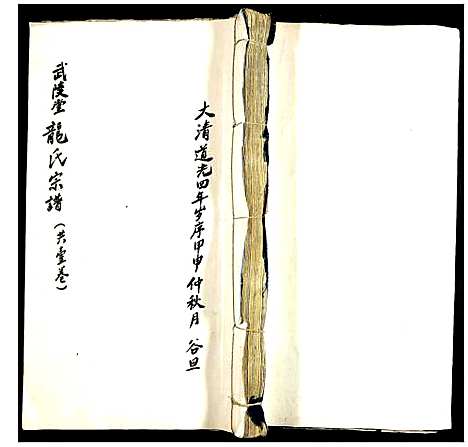 大清道光四年岁序甲申仲秋月 谷旦
武陵堂 龍氏宗譜（共壹卷）